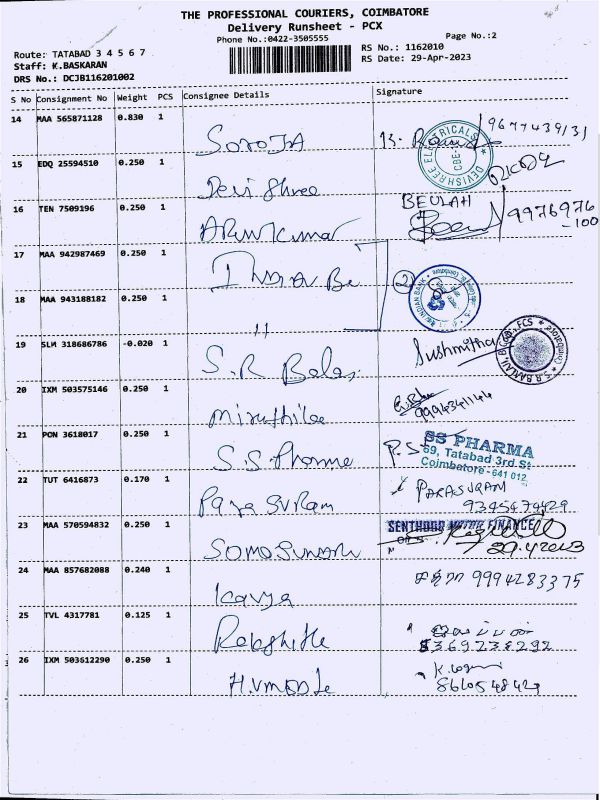 THE PROFESSIONAL COURIERS, COIMBATORE
Delivery Runsheet - PCX
Phone No.:0422-3505555
Page No.:2
Route: TATABAD 3 4 5 6 7
Staff: K.BASKARAN
DRS No.: DCJB116201002
RS No.: 1162010
RS Date: 29-Apr-2023
S No Consignment No Weight PCS Consignee Details Signature
14 MAA 565871128 0.830 1
SOROJA
9677439131
DEVISHREE ELECTRICALS
CBE
15 EDQ 25594510 0.250 1
Devi Shree
16 TEN 7509196 0.250 1
ARUN KUMAR
BEULAH
9976976
-100
17 MAA 942987469 0.250 1
INDIAN Ba
18 MAA 943188182 0.250 1
2
INDIAN BANK
"
19 SLM 318686786 -0.020 1
S.R Balaji
Sushmitha
S.R.BALAJI, B.Com., FCS
Coimbatore
20 IXM 503575146 0.250 1
Miruthilaa
9994341144
21 PON 3618017 0.250 1
S.S. Pharma
SS PHARMA
69, Tatabad 3rd St
Coimbatore-641 012
22 TUT 6416873 0.170 1
Parasuram
PARASURAM
9345474429
23 MAA 570594832 0.250 1
Somasundaram
SENTHOOR MOTOR FINANCE
29.4.2023
24 MAA 857682088 0.240 1
Kavya
9994283375
25 TVL 4317781 0.125 1
Rakshithe
6369238292
26 IXM 503612290 0.250 1